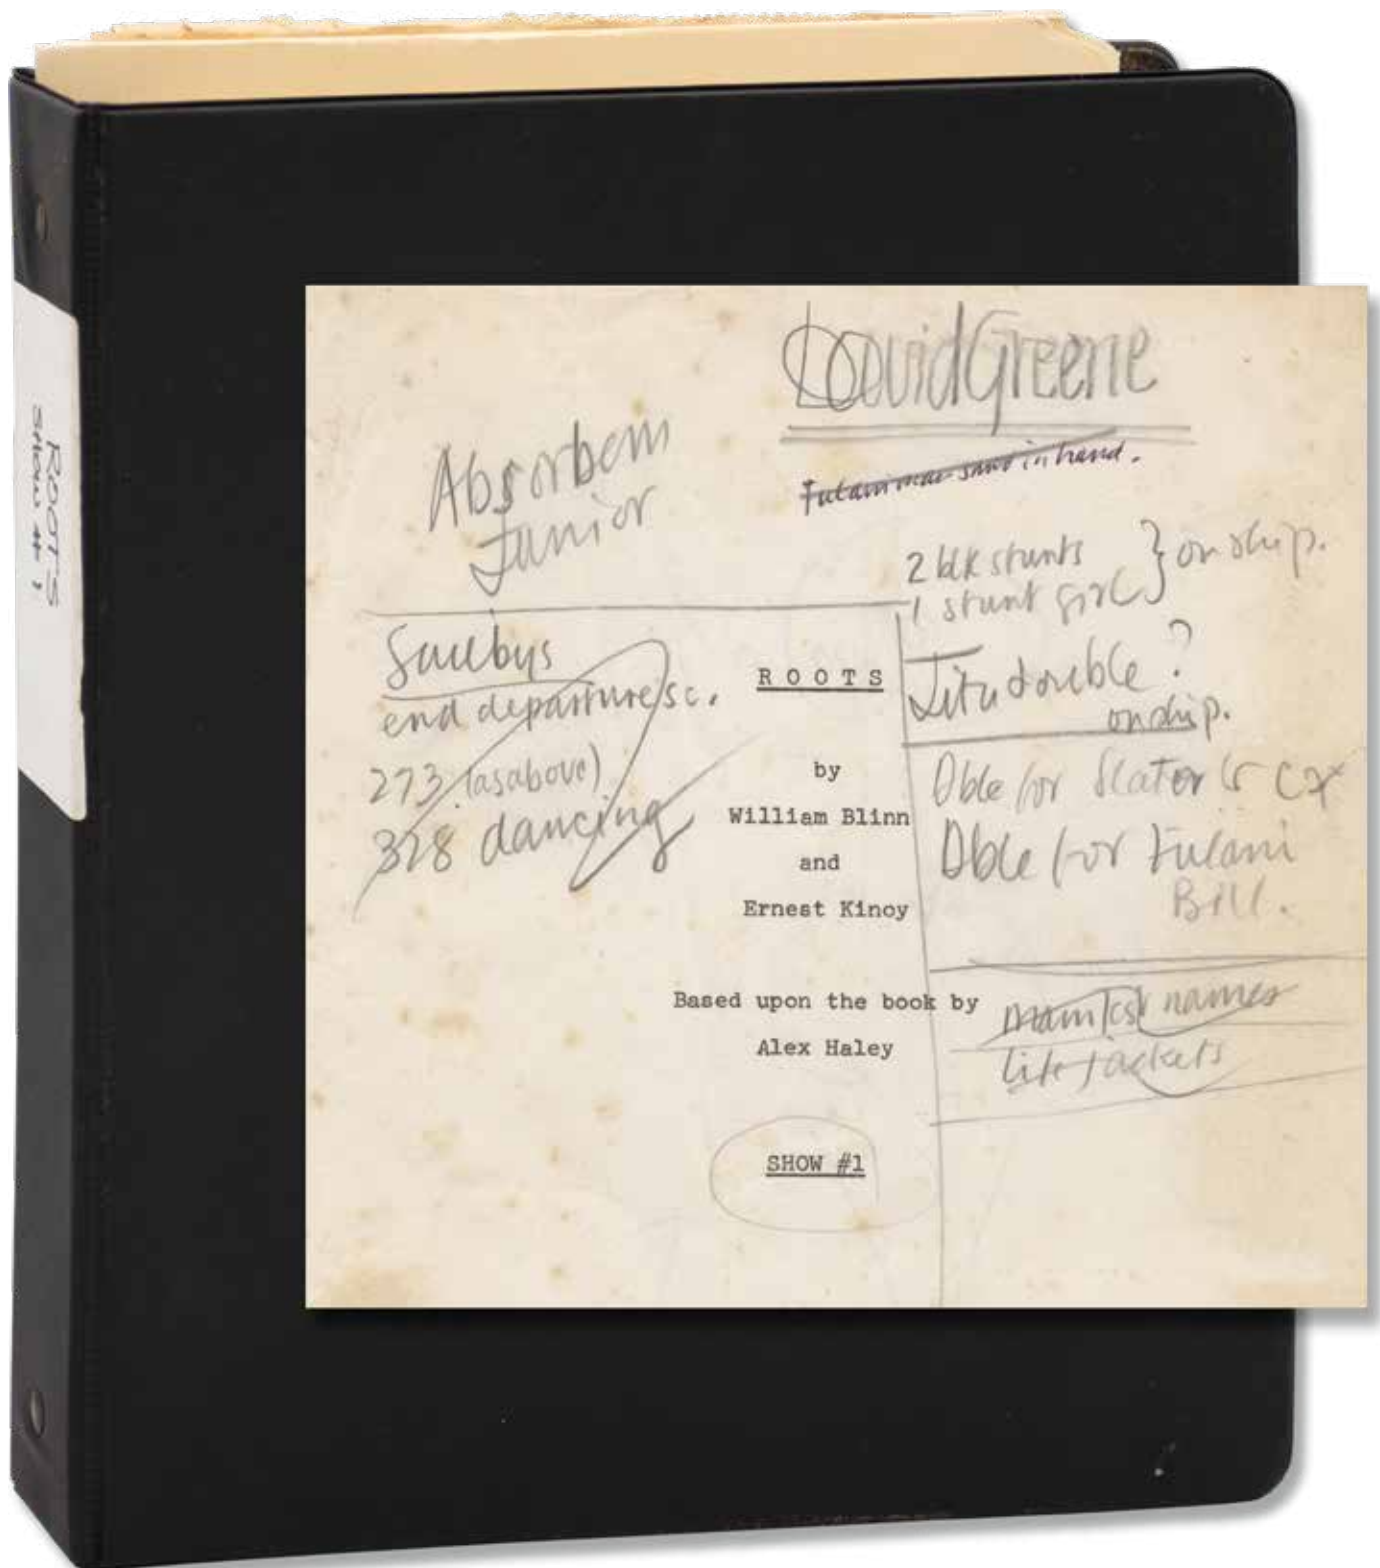 ROOTS
SHOW #1
David Greene
Absorbem
Junior
in hand.
2 blk stunts
1 stunt girl } on ship.
double ?
on ship.
end departure sc.
273 (as above)
328 dancing
R O O T S
by
William Blinn
and
Ernest Kinoy
Based upon the book by
Alex Haley
SHOW #1
Dble for Slater &
Dble for Fulani
Bill.
manifest names
life jackets